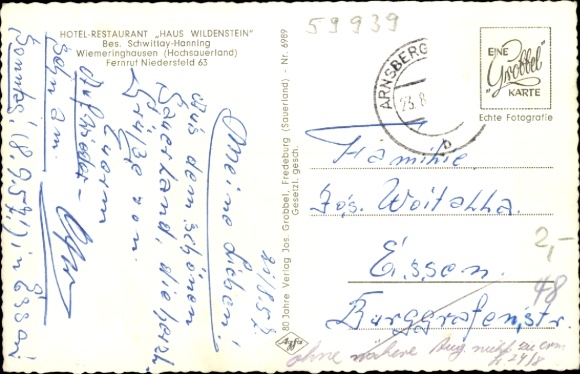 HOTEL-RESTAURANT „HAUS WILDENSTEIN"
Bes. Schwittay-Hanning
Wiemeringhausen (Hochsauerland)
Fernruf Niedersfeld 63
59939
ARNSBERG
23.8
b
EINE
„Grobbel"
KARTE
Echte Fotografie
80 Jahre Verlag Jos. Grobbel, Fredeburg (Sauerland) - Nr. 6989
Gesetzl. gesch.
Agfa
Meine Lieben!
Aus dem schönen
Sauerland, die herzl.
Grüße von
Euerm
Auf wieder-
sehn am
Sonntag (8.9.57) in Essen
Familie
Jos. Woitalla.
Essen.
Burggrafenstr.
2,-
48
ohne nähere